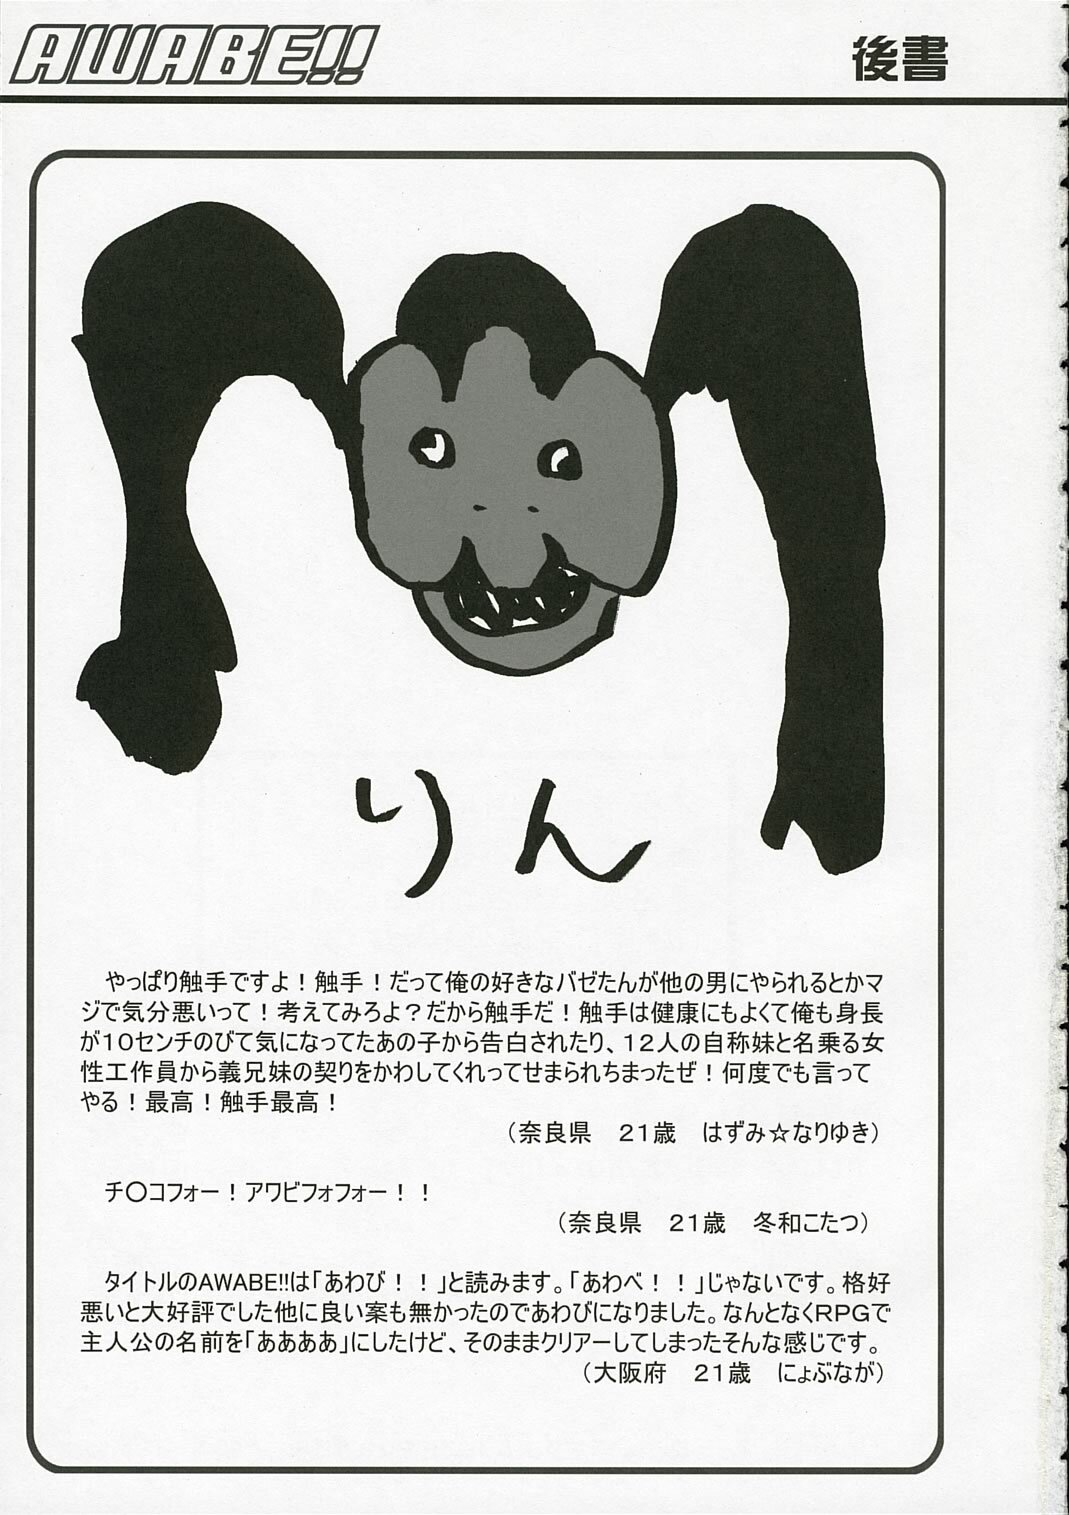 AWABE!!
後書
りん
やっぱり触手ですよ！触手！だって俺の好きなバゼたんが他の男にやられるとかマ
ジで気分悪いって！考えてみろよ？だから触手だ！触手は健康にもよくて俺も身長
が１０センチのびて気になってたあの子から告白されたり、１２人の自称妹と名乗る女
性工作員から義兄妹の契りをかわしてくれってせまられちまったぜ！何度でも言って
やる！最高！触手最高！
（奈良県　２１歳　はずみ☆なりゆき）
チ〇コフォー！アワビフォフォー！！
（奈良県　２１歳　冬和こたつ）
タイトルのAWABE!!は「あわび！！」と読みます。「あわべ！！」じゃないです。格好
悪いと大好評でした他に良い案も無かったのであわびになりました。なんとなくRPGで
主人公の名前を「ああああ」にしたけど、そのままクリアーしてしまったそんな感じです。
（大阪府　２１歳　にょぶなが）